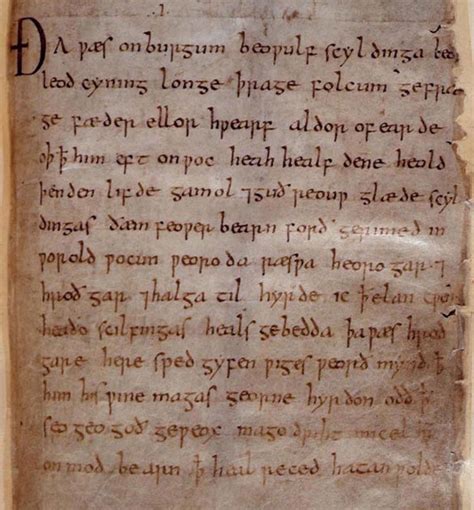 .I.
ÐA ƿæs on burgum beoƿulf scyldinga leof
leod cyning longe þrage folcum gefræ
ge fæder ellor hƿearf aldor of earde
oþ ꝥ him eft onƿoc heah healf dene heold
þenden lifde gamol ⁊ guð reouƿ glæde scyl
dingas ðæm feoƿer bearn forð gerimed in
ƿorold ƿocun ƿeoroda ræsƿa heoro gar ⁊
hroð gar ⁊ halga til hyrde ic ꝥ elan cƿen
heaðo scilfingas heals gebedda þa ƿæs hroð
gare here sped gyfen ƿiges ƿeorð mynd ꝥ
him his ƿine magas georne hyrdon oðð ꝥ
seo geogoð geƿeox mago driht micel
on mod bearn ꝥ heal reced hatan ƿolde